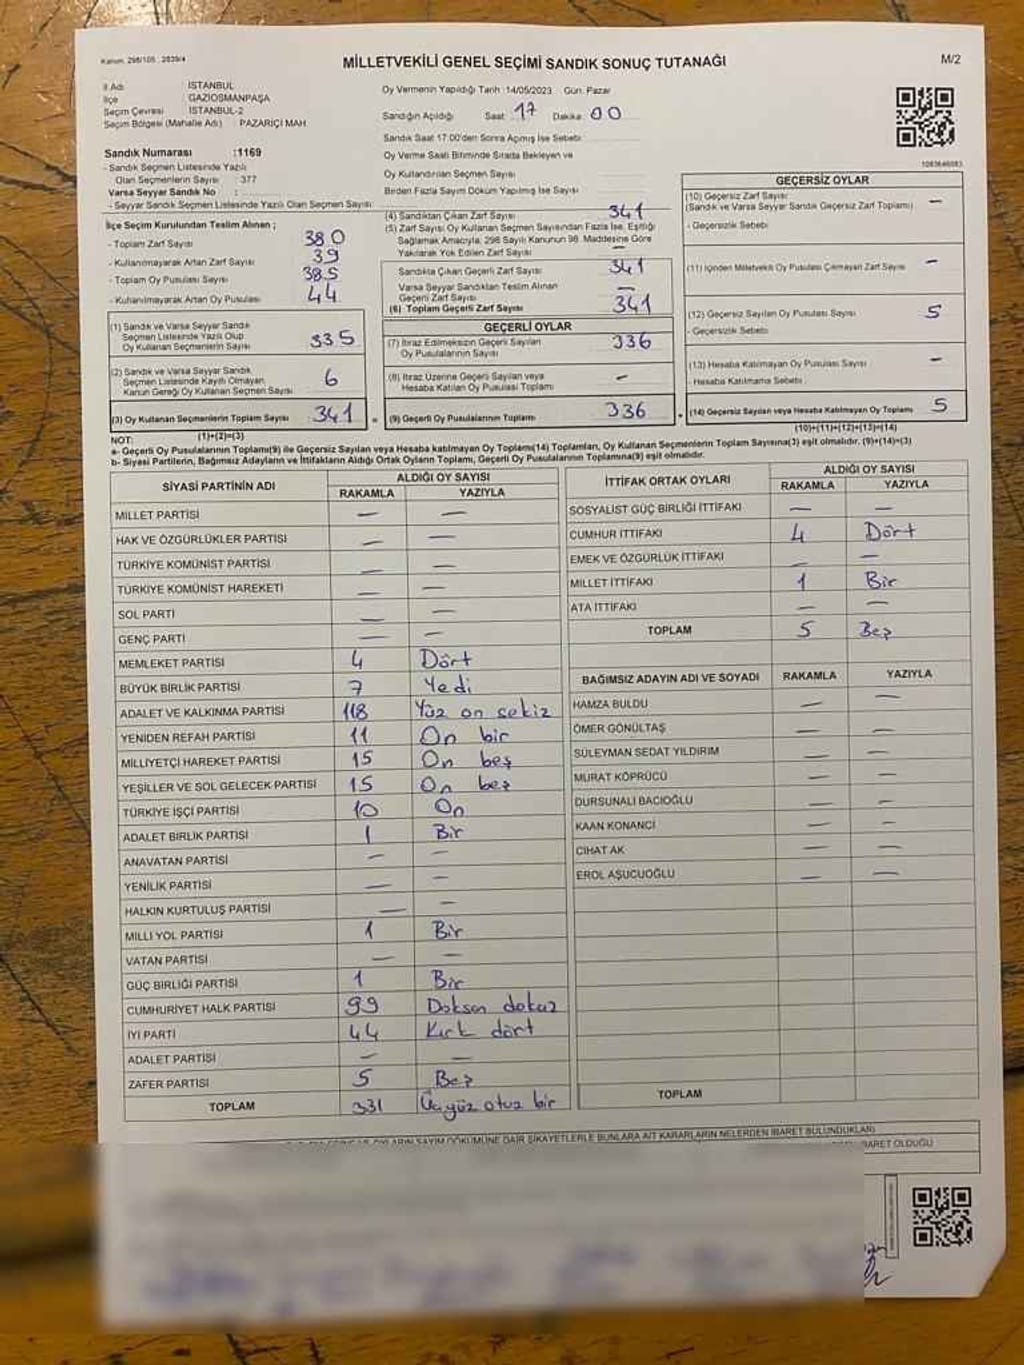 Kanun. 298/105 , 2839/4
MİLLETVEKİLİ GENEL SEÇİMİ SANDIK SONUÇ TUTANAĞI
M/2
İl Adı : İSTANBUL
İlçe : GAZİOSMANPAŞA
Seçim Çevresi : İSTANBUL-2
Seçim Bölgesi (Mahalle Adı) : PAZARİÇİ MAH.
Oy Vermenin Yapıldığı Tarih :14/05/2023 Gün: Pazar
Sandığın Açıldığı Saat: 17 Dakika: 00
Sandık Saat 17:00'den Sonra Açmış İse Sebebi
Oy Verme Saati Bitiminde Sırada Bekleyen ve
Oy Kullandırılan Seçmen Sayısı
Birden Fazla Sayım Döküm Yapılmış İse Sayısı
Sandık Numarası :1169
- Sandık Seçmen Listesinde Yazılı
Olan Seçmenlerin Sayısı : 377
Varsa Seyyar Sandık No :
- Seyyar Sandık Seçmen Listesinde Yazılı Olan Seçmen Sayısı :
İlçe Seçim Kurulundan Teslim Alınan ;
- Toplam Zarf Sayısı 380
- Kullanılmayarak Artan Zarf Sayısı 39
- Toplam Oy Pusulası Sayısı 385
- Kullanılmayarak Artan Oy Pusulası 44
(1) Sandık ve Varsa Seyyar Sandık
Seçmen Listesinde Yazılı Olup
Oy Kullanan Seçmenlerin Sayısı 335
(2) Sandık ve Varsa Seyyar Sandık
Seçmen Listesinde Kayıtlı Olmayan
Kanun Gereği Oy Kullanan Seçmen Sayısı 6
(3) Oy Kullanan Seçmenlerin Toplam Sayısı 341 =
(1)+(2)=(3)
(4) Sandıktan Çıkan Zarf Sayısı 341
(5) Zarf Sayısı Oy Kullanan Seçmen Sayısından Fazla İse, Eşitliği
Sağlamak Amacıyla, 298 Sayılı Kanunun 98. Maddesine Göre
Yakılarak Yok Edilen Zarf Sayısı —
Sandıkta Çıkan Geçerli Zarf Sayısı 341
Varsa Seyyar Sandıktan Teslim Alınan
Geçerli Zarf Sayısı —
(6) Toplam Geçerli Zarf Sayısı 341
GEÇERLİ OYLAR
(7) İtiraz Edilmeksizin Geçerli Sayılan
Oy Pusulalarının Sayısı 336
(8) İtiraz Üzerine Geçerli Sayılan veya
Hesaba Katılan Oy Pusulası Toplamı —
(9) Geçerli Oy Pusulalarının Toplamı 336
1083646083
GEÇERSİZ OYLAR
(10) Geçersiz Zarf Sayısı
(Sandık ve Varsa Seyyar Sandık Geçersiz Zarf Toplamı) —
- Geçersizlik Sebebi
(11) İçinden Milletvekili Oy Pusulası Çıkmayan Zarf Sayısı —
(12) Geçersiz Sayılan Oy Pusulası Sayısı 5
- Geçersizlik Sebebi
(13) Hesaba Katılmayan Oy Pusulası Sayısı —
- Hesaba Katılmama Sebebi
(14) Geçersiz Sayılan veya Hesaba Katılmayan Oy Toplamı 5
(10)+(11)+(12)+(13)=(14)
NOT:
a- Geçerli Oy Pusulalarının Toplamı(9) ile Geçersiz Sayılan veya Hesaba katılmayan Oy Toplamı(14) Toplamları, Oy Kullanan Seçmenlerin Toplam Sayısına(3) eşit olmalıdır. (9)+(14)=(3)
b- Siyasi Partilerin, Bağımsız Adayların ve İttifakların Aldığı Ortak Oyların Toplamı, Geçerli Oy Pusulalarının Toplamına(9) eşit olmalıdır.
SİYASİ PARTİNİN ADI ALDIĞI OY SAYISI
RAKAMLA YAZIYLA
MİLLET PARTİSİ — —
HAK VE ÖZGÜRLÜKLER PARTİSİ — —
TÜRKİYE KOMÜNİST PARTİSİ — —
TÜRKİYE KOMÜNİST HAREKETİ — —
SOL PARTİ — —
GENÇ PARTİ — —
MEMLEKET PARTİSİ 4 Dört
BÜYÜK BİRLİK PARTİSİ 7 Yedi
ADALET VE KALKINMA PARTİSİ 118 Yüz on sekiz
YENİDEN REFAH PARTİSİ 11 On bir
MİLLİYETÇİ HAREKET PARTİSİ 15 On beş
YEŞİLLER VE SOL GELECEK PARTİSİ 15 On beş
TÜRKİYE İŞÇİ PARTİSİ 10 On
ADALET BİRLİK PARTİSİ 1 Bir
ANAVATAN PARTİSİ — —
YENİLİK PARTİSİ — —
HALKIN KURTULUŞ PARTİSİ — —
MİLLİ YOL PARTİSİ 1 Bir
VATAN PARTİSİ — —
GÜÇ BİRLİĞİ PARTİSİ 1 Bir
CUMHURİYET HALK PARTİSİ 99 Doksan dokuz
İYİ PARTİ 44 Kırk dört
ADALET PARTİSİ — —
ZAFER PARTİSİ 5 Beş
TOPLAM 331 Üçyüz otuz bir
İTTİFAK ORTAK OYLARI ALDIĞI OY SAYISI
RAKAMLA YAZIYLA
SOSYALİST GÜÇ BİRLİĞİ İTTİFAKI — —
CUMHUR İTTİFAKI 4 Dört
EMEK VE ÖZGÜRLÜK İTTİFAKI — —
MİLLET İTTİFAKI 1 Bir
ATA İTTİFAKI — —
TOPLAM 5 Beş
BAĞIMSIZ ADAYIN ADI VE SOYADI RAKAMLA YAZIYLA
HAMZA BULDU — —
ÖMER GÖNÜLTAŞ — —
SÜLEYMAN SEDAT YILDIRIM — —
MURAT KÖPRÜCÜ — —
DURSUNALİ BACIOĞLU — —
KAAN KONANCİ — —
CİHAT AK — —
EROL AŞUCUOĞLU — —
TOPLAM
OYLARIN SAYIM DÖKÜMÜNE DAİR ŞİKAYETLERLE BUNLARA AİT KARARLARIN NELERDEN İBARET BULUNDUKLARI
İBARET OLDUĞU